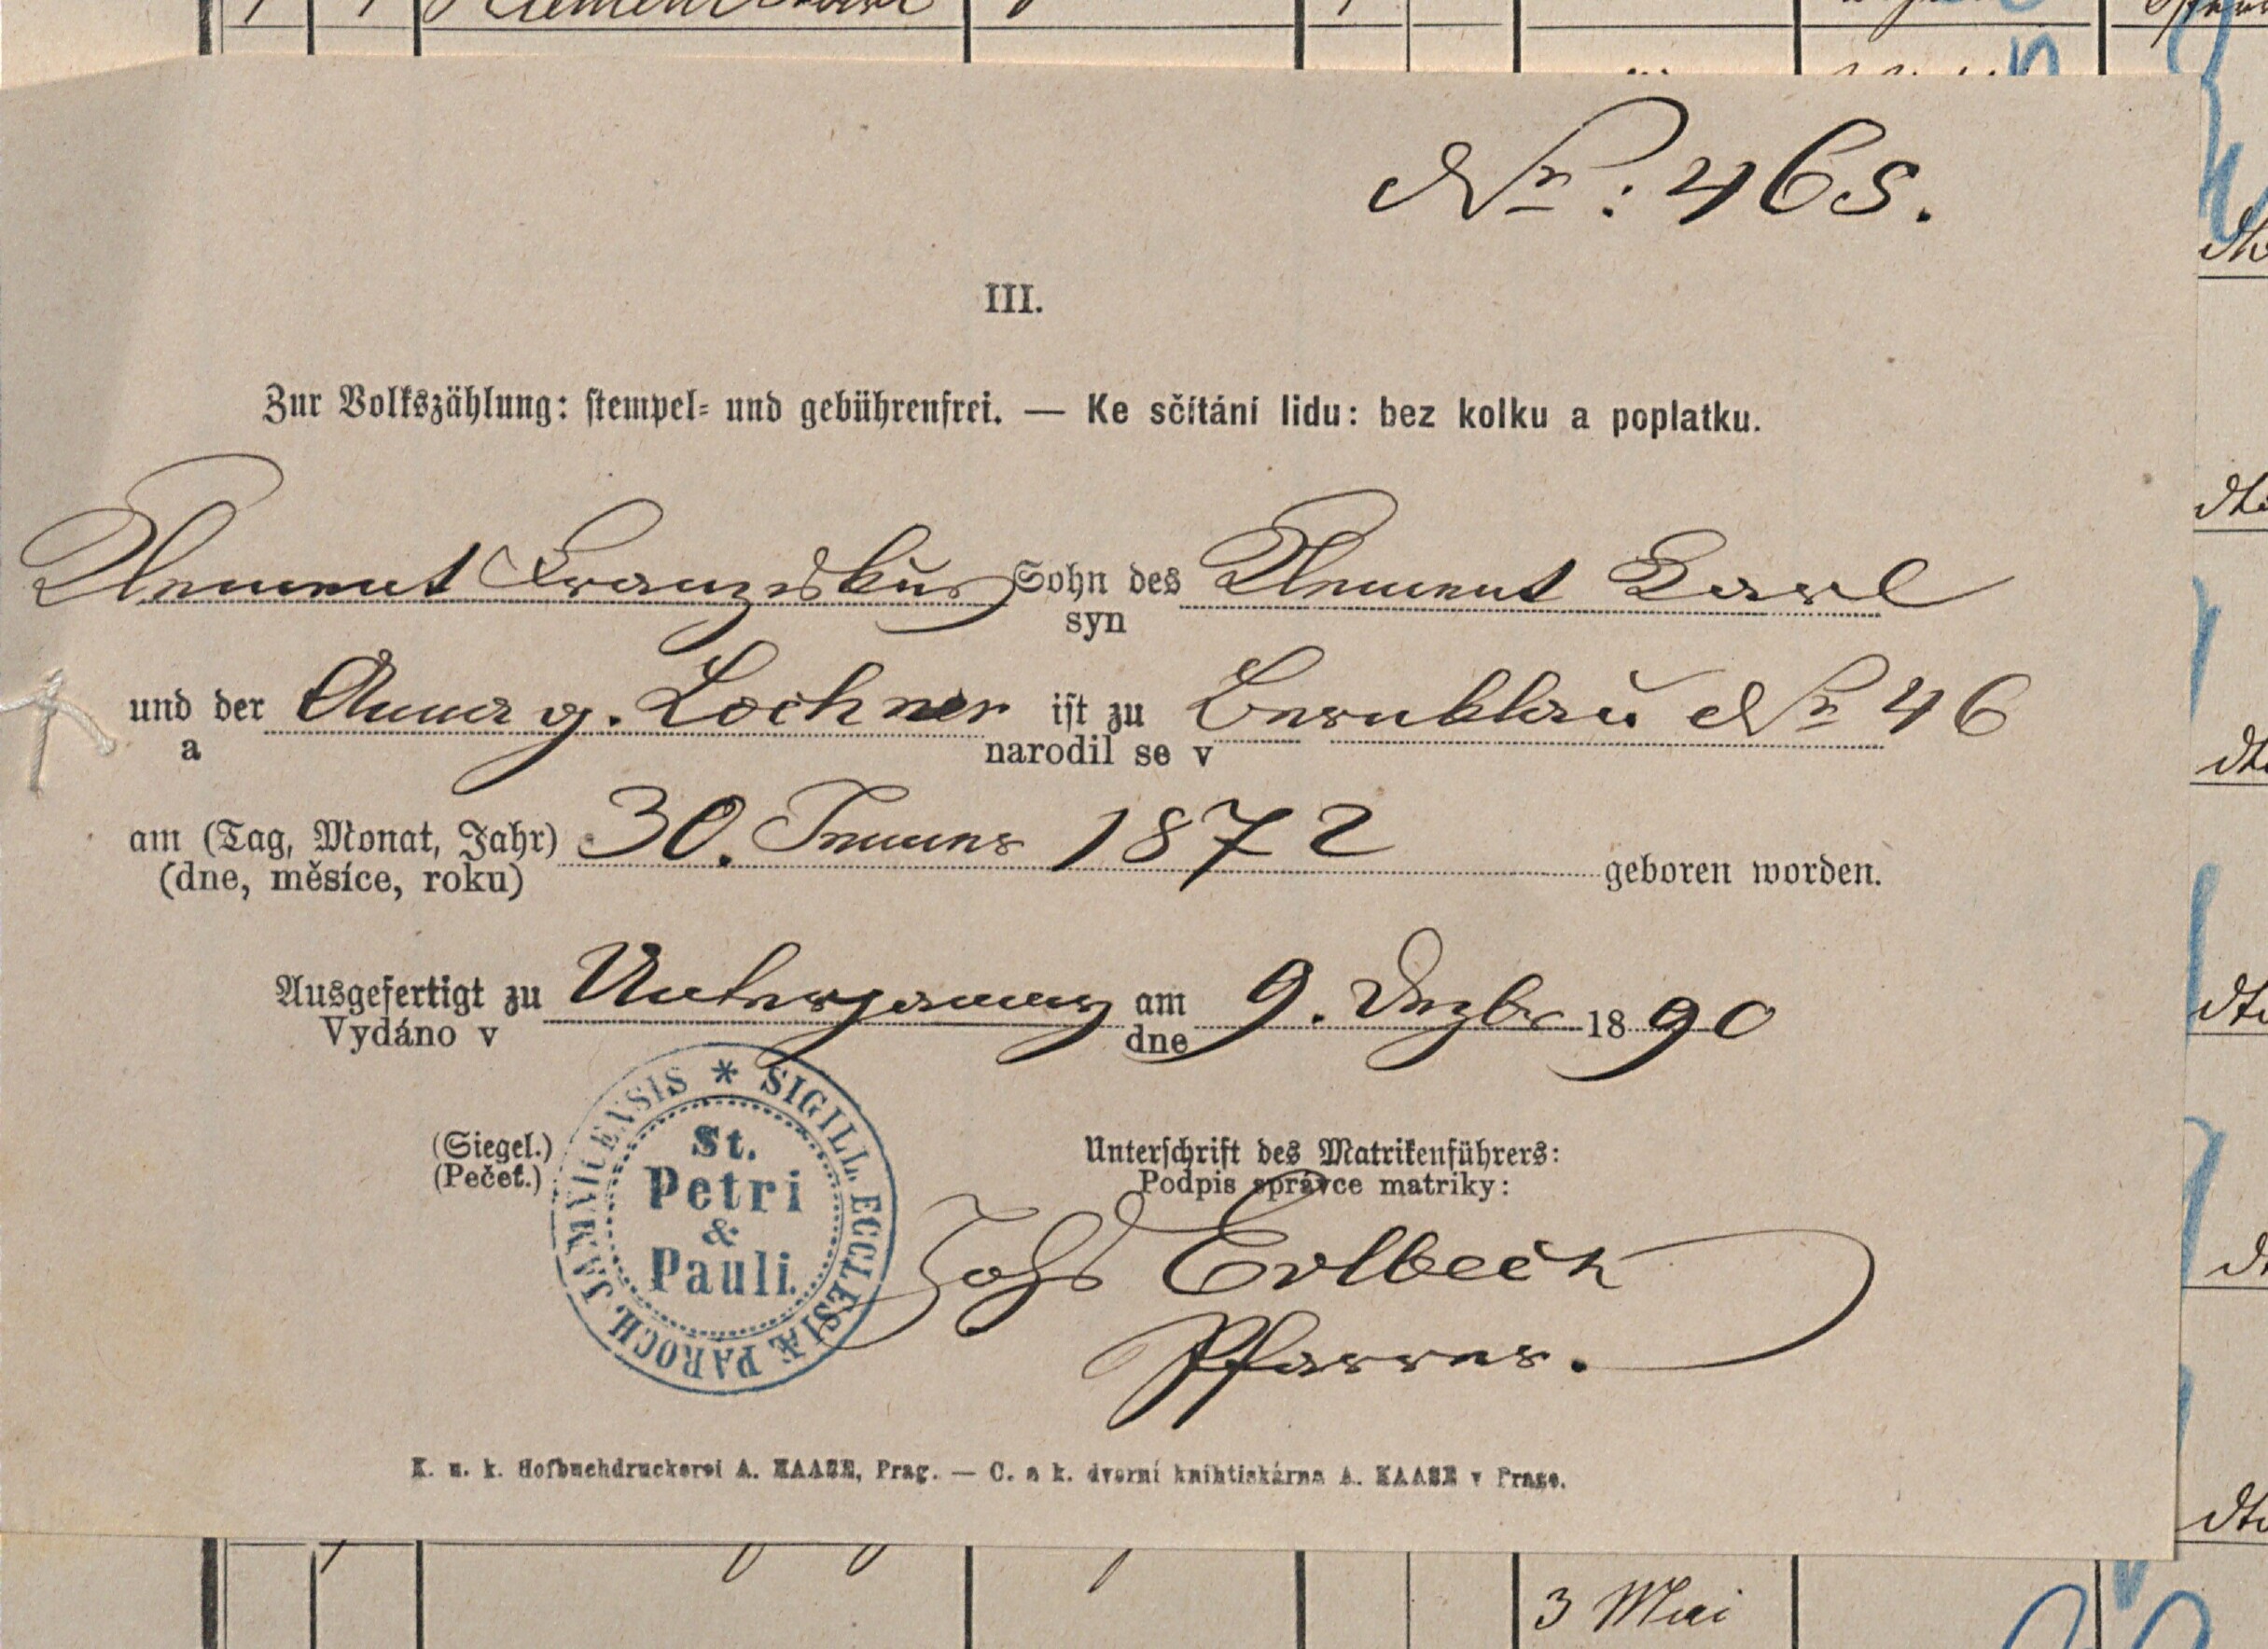 Klement Karl
Nr: 465.
III.
Zur Volkszählung: stempel- und gebührenfrei. — Ke sčítání lidu: bez kolku a poplatku.
Klement Franziskus Sohn des Klement Karl
syn
und der Anna g. Lochner ist zu Beneblau Nr 46
a narodil se v
am (Tag, Monat, Jahr) 30. Jänner 1872 geboren worden.
(dne, měsíce, roku)
Ausgefertigt zu Unterjamny am 9. Dezbr 1890
Vydáno v dne
(Siegel.)
(Pečeť.)
* SIGILL. ECCLESIÆ PAROCH. JAMNICENSIS
St.
Petri
&
Pauli.
Unterschrift des Matrikenführers:
Podpis správce matriky:
Johs Erlbeck
Pfarrer.
K. u. k. Hofbuchdruckerei A. HAASE, Prag. — C. a k. dvorní knihtiskárna A. HAASE v Praze.
3 Mai